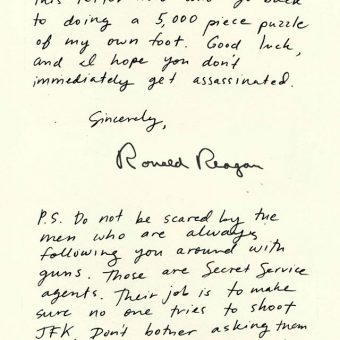 this letter now and go back
to doing a 5,000 piece puzzle
of my own foot. Good luck,
and I hope you don't
immediately get assassinated.
Sincerely,
Ronald Reagan
P.S. Do not be scared by the
men who are always
following you around with
guns. Those are Secret Service
agents. Their job is to make
sure no one tries to shoot
JFK. Don't bother asking them